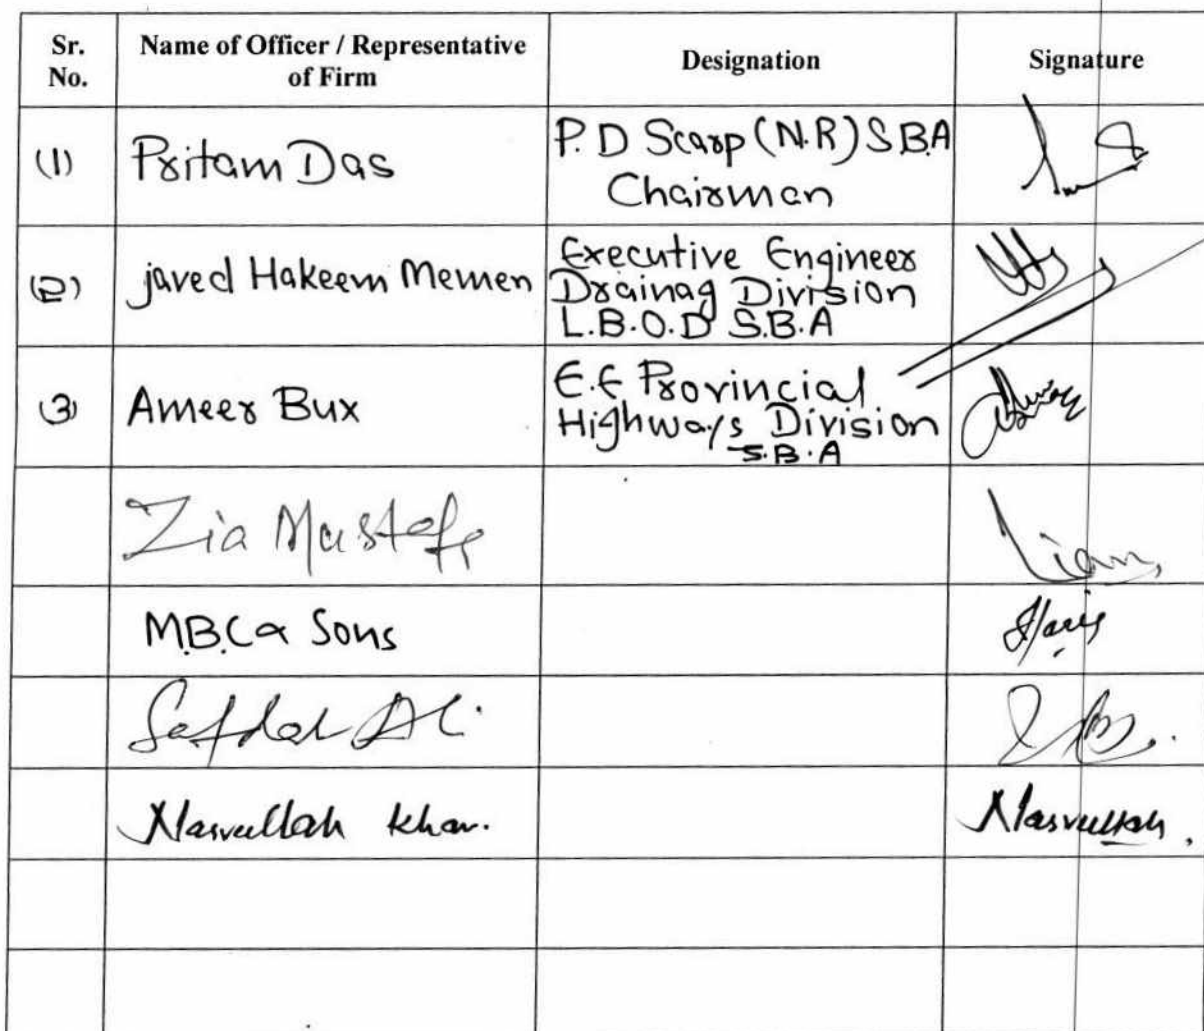 Sr. No.
Name of Officer / Representative of Firm
Designation
Signature
(1) Pritam Das
P. D Scarp (N.R) S.B.A
Chairman
(2) javed Hakeem Memen
Executive Engineer
Drainag Division
L.B.O.D S.B.A
(3) Ameer Bux
E.E Provincial
Highways Division
S.B.A
Zia Mustafa
M.B.C & Sons
Haris
Safdar Ali
Nasrullah Khan.
Nasrullah